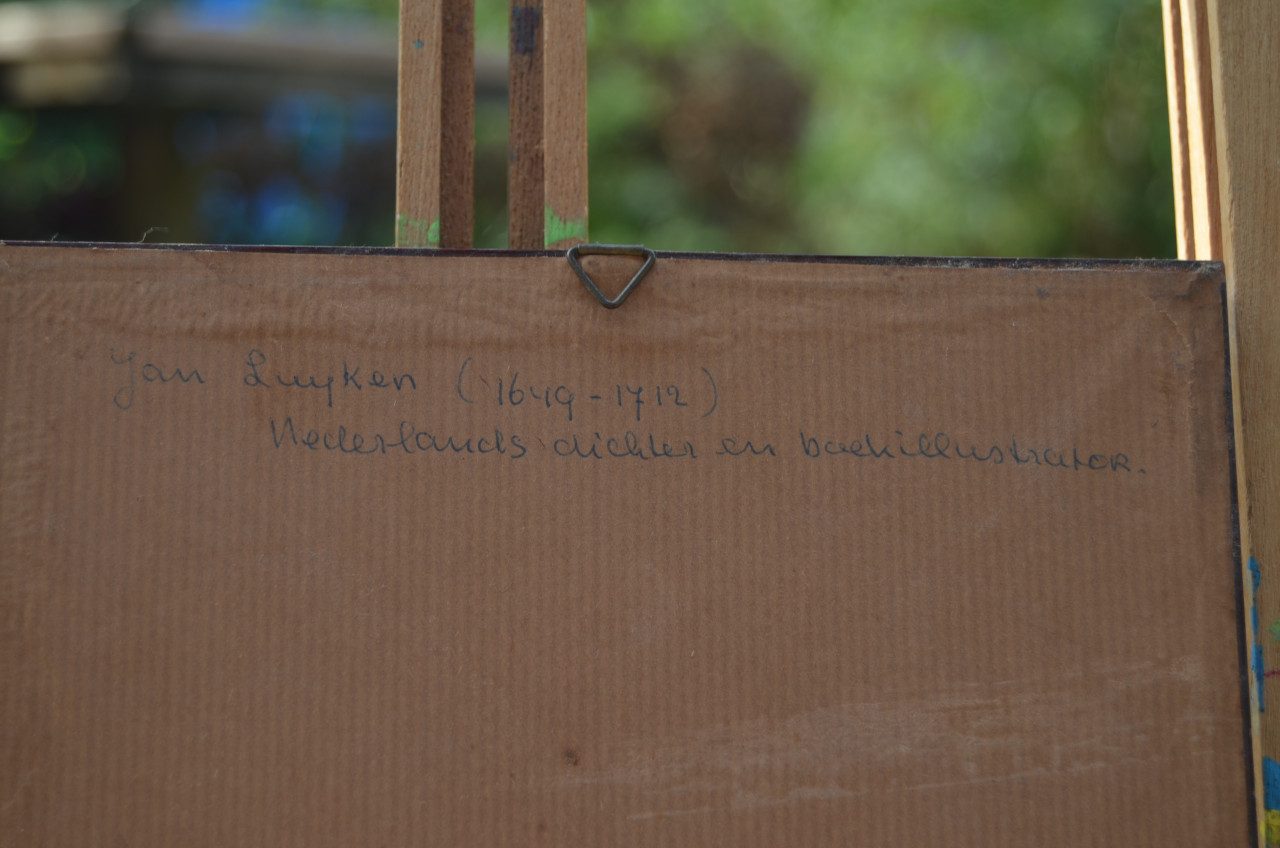 Jan Luyken (1649-1712)
Nederlands dichter en boekillustrator.